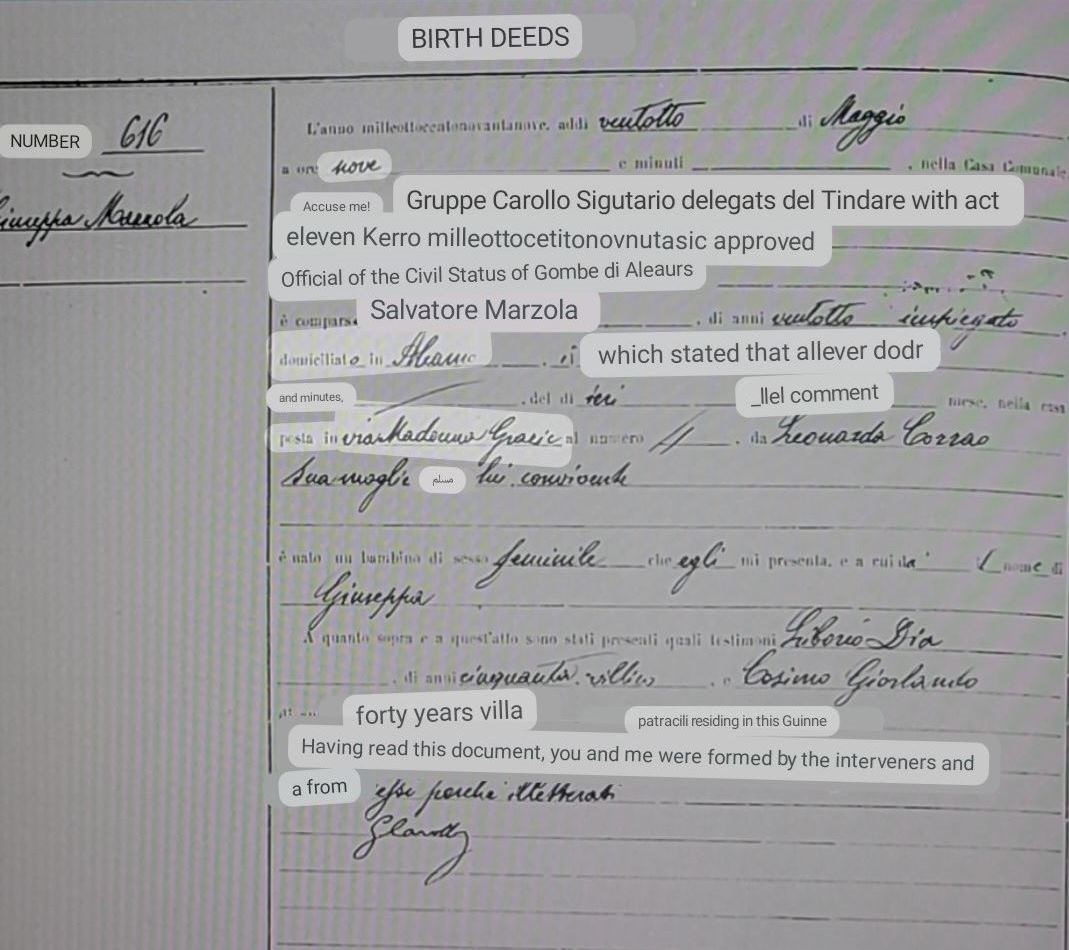 BIRTH DEEDS
NUMBER 616
Giuseppa Marzola
L'anno millottocentonovantanove, addì ventotto di Maggio
a ore nove e minuti , nella Casa Comunale
Accuse me! Gruppe Carollo Sigutario delegats del Tindare with act
eleven Kerro milleottocetitonovnutasic approved
Official of the Civil Status of Gombe di Aleaurs
è compars Salvatore Marzola , di anni ventotto impiegato
domiciliato in Alcamo , which stated that allever dodr
and minutes, , del dì ieri _llel comment mese, nella casa
posta in via Madonna Grazie al numero , da Leonarda Corrao
sua moglie مسلم lui convivente
è nato un bambino di sesso feminile che egli mi presenta, e a cui dà nome di
Giuseppa
A quanto sopra e a quest'atto sono stati presenti quali testimoni Liborio Dia
, di anni cinquanta villico , e Cosimo Giorlando
forty years villa patracili residing in this Guinne
Having read this document, you and me were formed by the interveners and
a from essi perchè illetterati